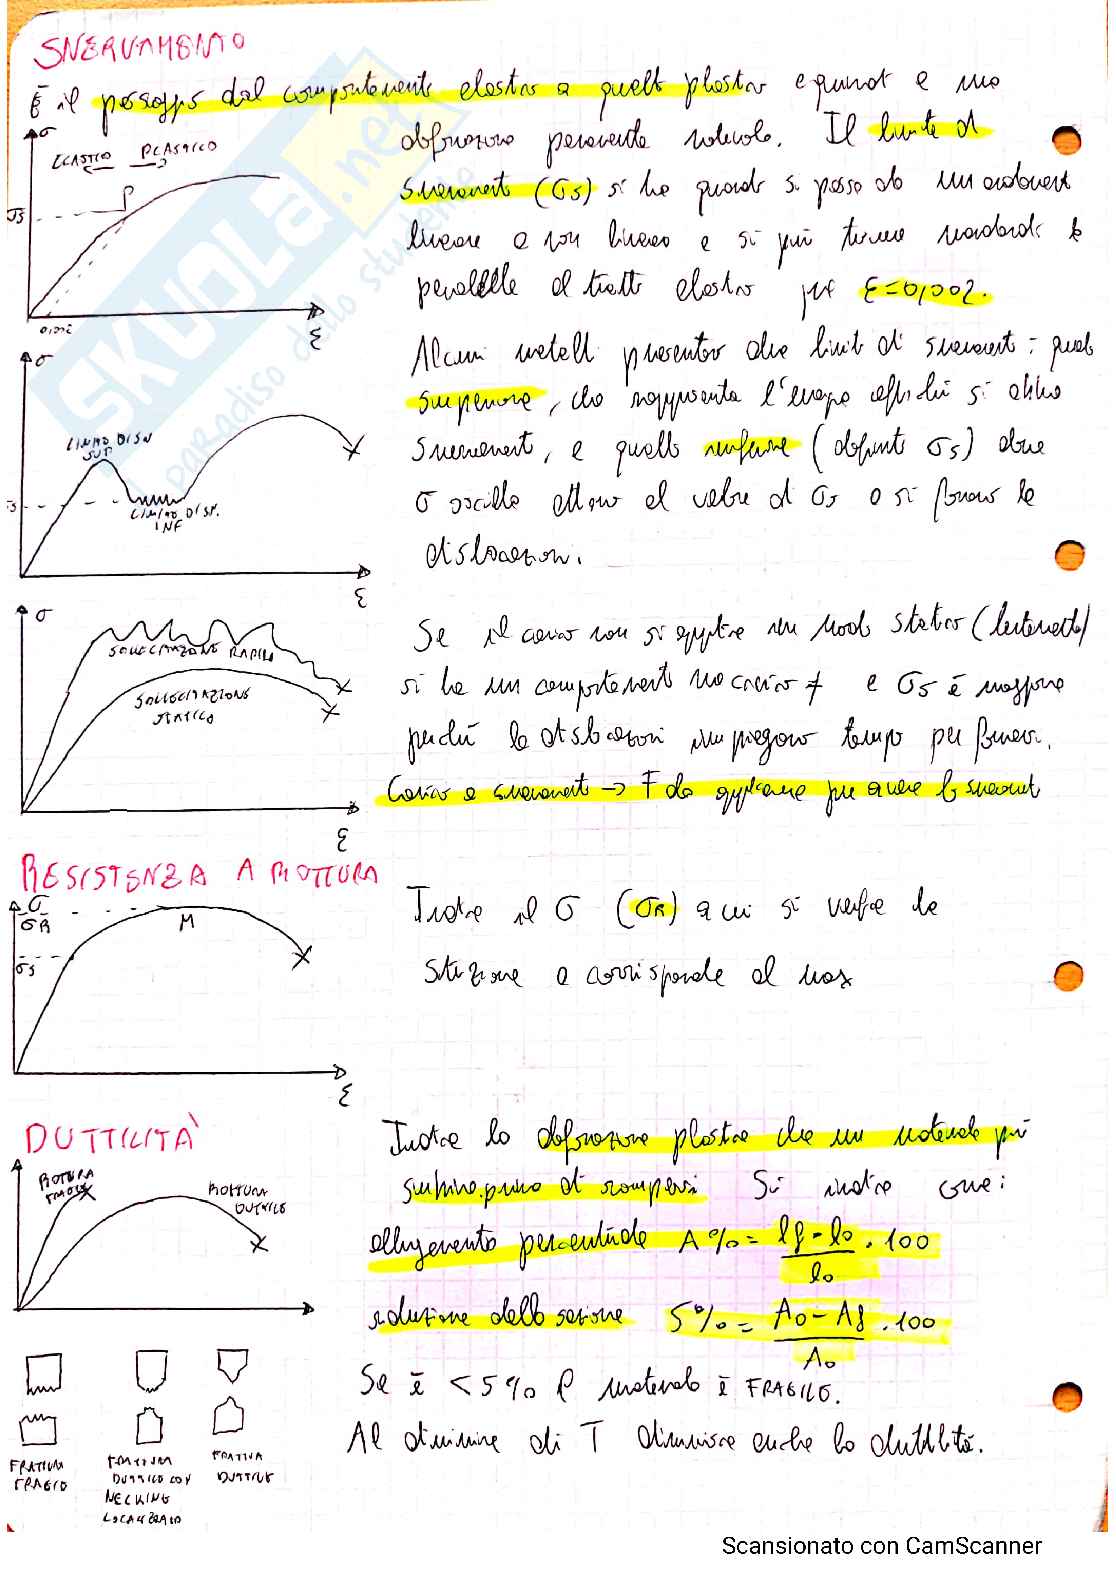 SNERVAMENTO
È il passaggio dal comportamento elastico a quello plastico e quindi è una
deformazione permanente notevole. Il limite di
snervamento (σs) si ha quando si passa da un andamento
lineare a non lineare e si può trovare mandando la
parallela al tratto elastico per ε=0,002.
σ
ELASTICO PLASTICO
P
σs
0,002
ε
Alcuni metalli presentano due limiti di snervamento: quello
superiore, che rappresenta l'energia affinché si abbia
snervamento, e quello inferiore (definito σs) dove
σ oscilla attorno al valore di σs e si formano le
dislocazioni.
σ
LIMITE DI SN
SUP
LIMITE DI SN.
INF
ε
Se il carico non si applica in modo statico (lentamente)
si ha un comportamento meccanico ≠ e σs è maggiore
perché le dislocazioni impiegano tempo per formarsi.
Carico a snervamento → F da applicare per avere lo snervamento
σ
SOLLECITAZIONE RAPIDA
SOLLECITAZIONE
STATICA
ε
RESISTENZA A ROTTURA
Indica il σ (σR) a cui si verifica la
strizione e corrisponde al max
σ
σR
M
σs
ε
DUTTILITÀ
Indica la deformazione plastica che un materiale può
subire prima di rompersi Si indica come:
allungamento percentuale A% = lf - l0 / l0 · 100
riduzione della sezione S% = A0 - Af / A0 · 100
Se è <5% il materiale è FRAGILE.
Al diminuire di T diminuisce anche la duttilità.
ROTTURA
FRAGILE
ROTTURA
DUTTILE
FRATTURA
FRAGILE
FRATTURA
DUTTILE CON
NECKING
LOCALIZZATO
FRATTURA
DUTTILE
SKUOLA.net
paradiso dello studente
Scansionato con CamScanner